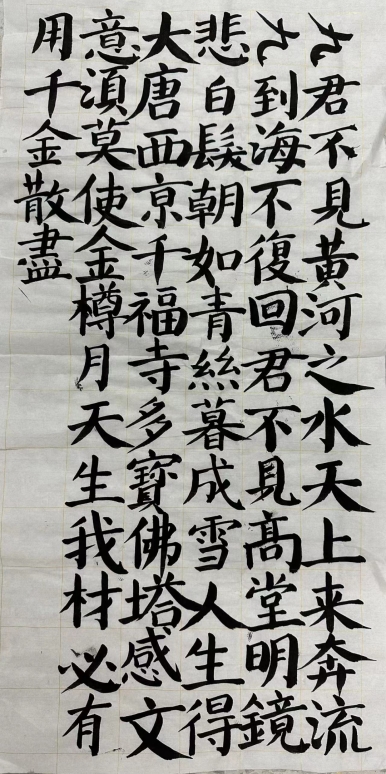 九君不見黃河之水天上来奔流
九到海不復回君不見髙堂明鏡
悲白髮朝如青絲暮成雪人生得
大唐西京千福寺多寶佛塔感文
意須莫使金樽月天生我材必有
用千金散盡